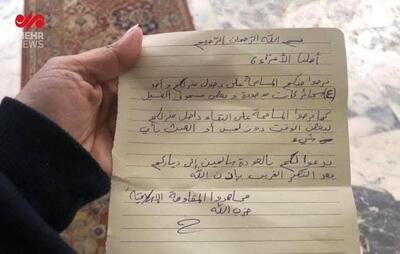 MEHR
NEWS
بسم الله الرحمن الرحيم
أهلنا الأعزاء
نرجوا منكم المسامحة على دخول منزلكم و أخذ
(٤) سجائر كانت موجودة و بعض مستحق الغسيل
كما نرجوا المسامحة على البقاء داخل منزلكم
لبعض الوقت دون لمس أو العبث بأي
شيء
ندعوا لكم بالعودة سالمين إلى دياركم
بعد النصر القريب بإذن الله
مجاهدوا المقاومة الإسلامية
حزب الله